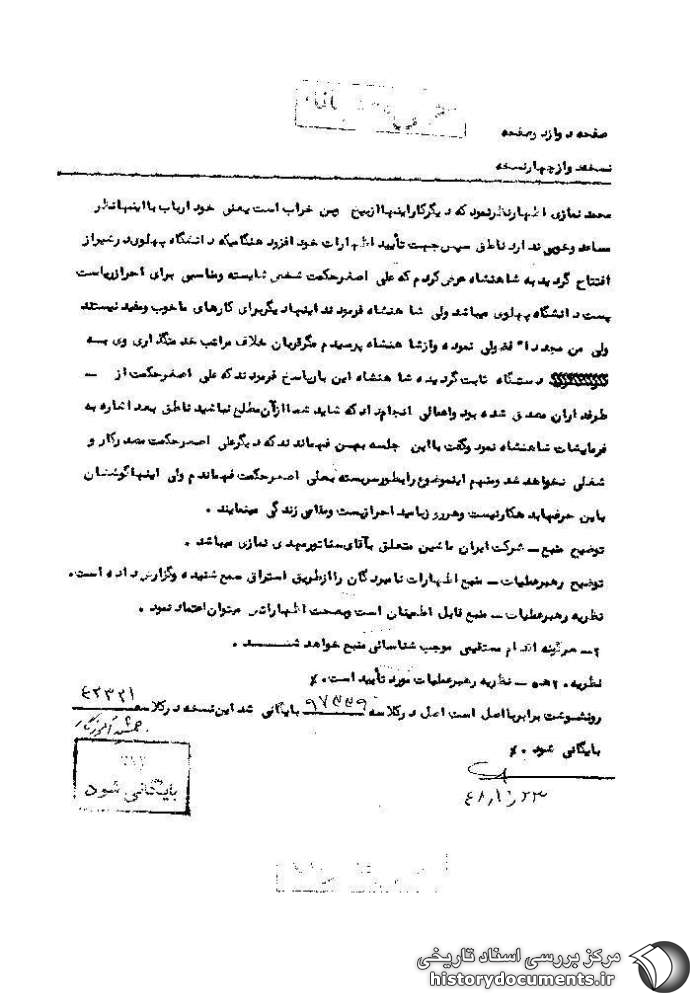 صفحه دوازد وصفحه
نسخه دو از چهار نسخه
محمد نمازی اظهار نظر نمود که دیگر کار اینها از بیخ وبن خراب است یعنی خود ارباب با اینها نظر
مساعد وخوبی ندارد ناطق سپس جهت تأیید اظهارات خود افزود هنگامیکه دانشگاه پهلوی در شیراز
افتتاح گردید به شاهنشاه عرض کردم که علی اصغر حکمت شخص شایسته ومناسبی برای احراز ریاست
پست دانشگاه پهلوی میباشد ولی شاهنشاه فرمودند اینها دیگر برای کارهای ما خوب ومفید نیستند
ولی من مجددا" فضولی نموده واز شاهنشاه پرسیدم مگر قربان خلاف مراتب خدمتگذاری وی به
دستگاه ثابت گردیده شاهنشاه این بار پاسخ فرمودند که علی اصغر حکمت از -
طرفداران مصدق شده بود واعمالی انجام داد که شاید شما از آن مطلع نباشید ناطق بعد اشاره به
فرمایشات شاهنشاه نمود وگفت با این جلسه بمن فهماندند که دیگر علی اصغر حکمت مصدر کار و
شغلی نخواهد شد ومنهم اینموضوع را بطور سربسته بعلی اصغر حکمت فهماندم ولی اینها گوششان
باین حرفها بدهکار نیست وهر روز بامید احراز پست ومقامی زندگی مینمایند .
توضیح منبع - شرکت ایران ماشین متعلق بآقای سناتور مهدی نمازی میباشد .
توضیح رهبر عملیات - منبع اظهارات نامبردگان را از طریق استراق سمع شنیده وگزارش داده است.
نظریه رهبر عملیات - منبع قابل اطمینان است وبصحت اظهاراتش میتوان اعتماد نمود .
۲- هرگونه اقدام مستقیمی موجب شناسائی منبع خواهد شد .
نظریه ۲۰ هـ - نظریه رهبر عملیات مورد تأیید است . ٪
رونوشت برابر با اصل است اصل در کلاسه ۹۷۵۵۹ بایگانی شد این نسخه در کلاسه ۴۲۳۲۱
جمشید آموزگار
بایگانی شود . ٪
بایگانی شود
۴۸٫۱٫۲۳
مرکز بررسی اسناد تاریخی
historydocuments.ir